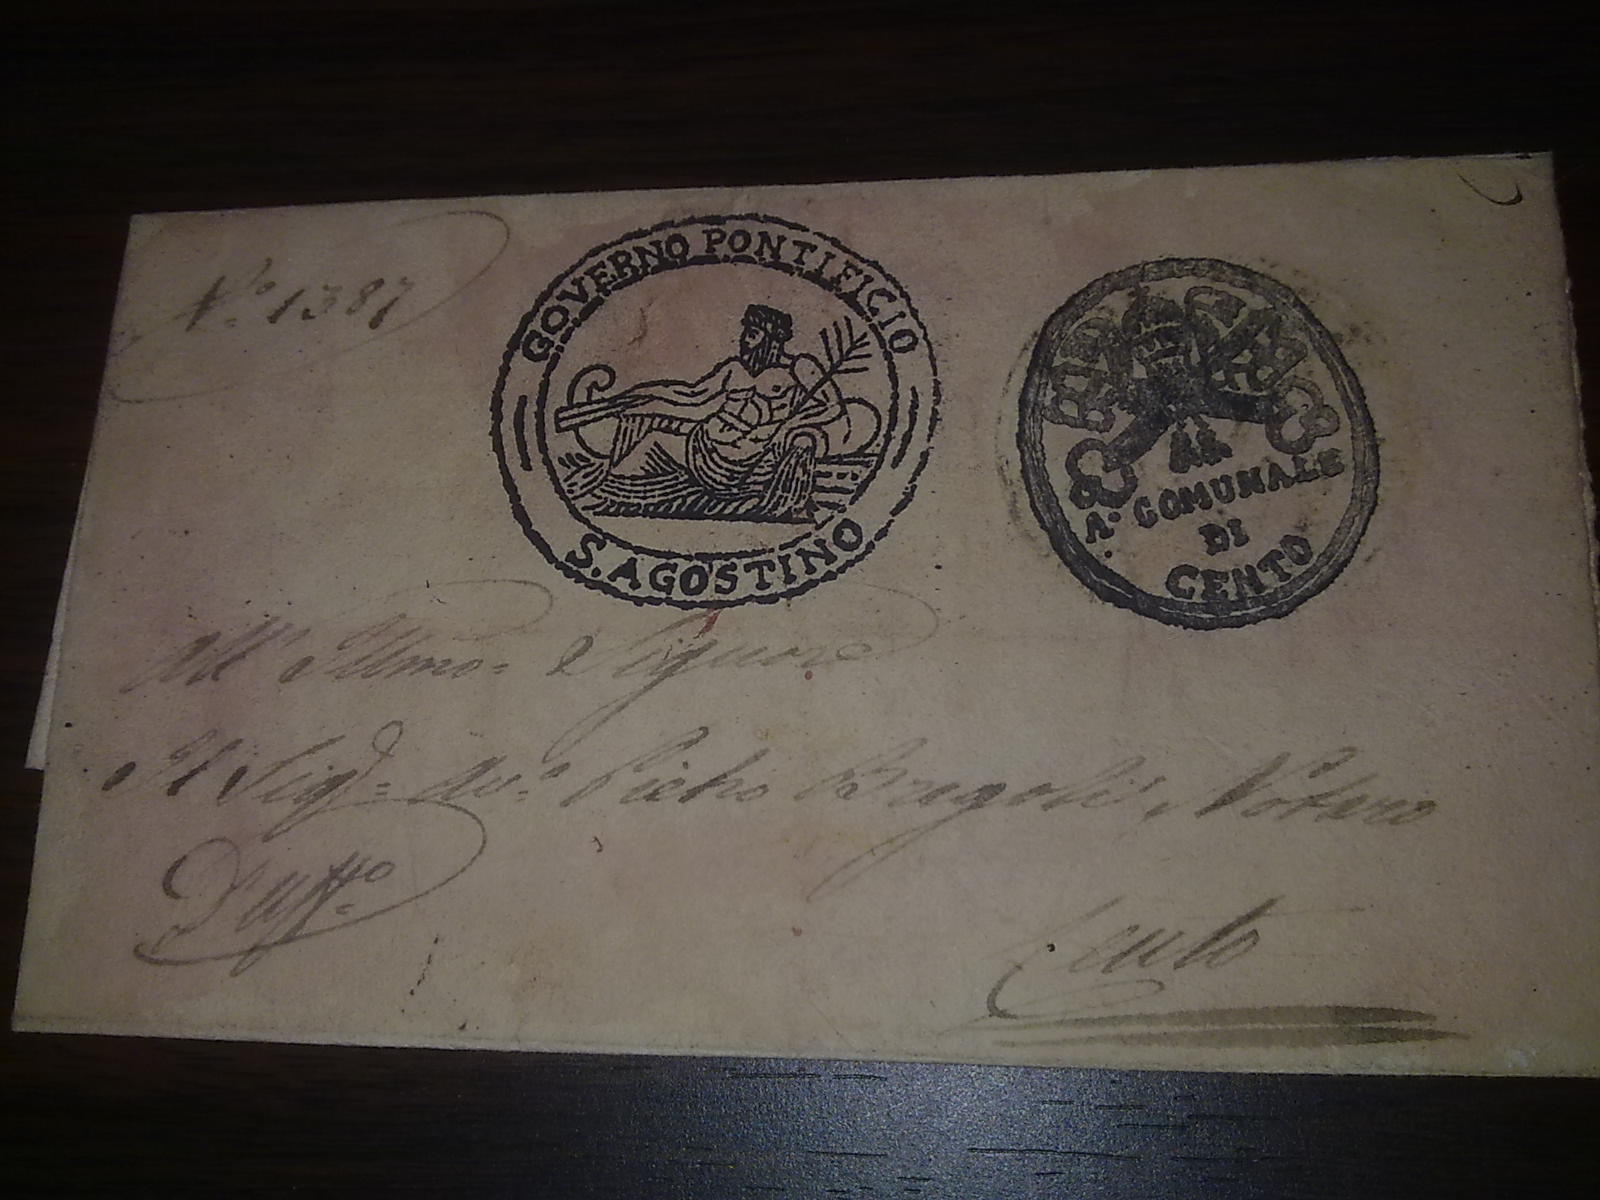 N.° 1387
GOVERNO PONTIFICIO
S. AGOSTINO
A.° COMUNALE
DI
CENTO
All' Illmo. Signore
Il Sig.r Avv.° Pietro Notaro
D'Uff.°
Cento